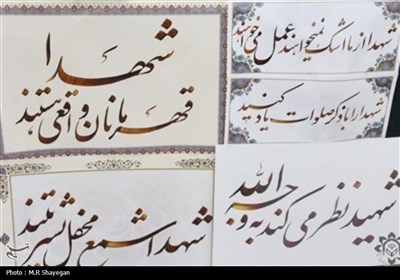 شهدا از ما اشک نمیخواهند عمل می خواهند
شهدا
قهرمانان واقعی هستند
شهدا را با ذکر صلوات یاد کنید
شهید نظر می کند به وجه الله
شهدا شمع محفل بشریتند
Photo : M.R Shayegan